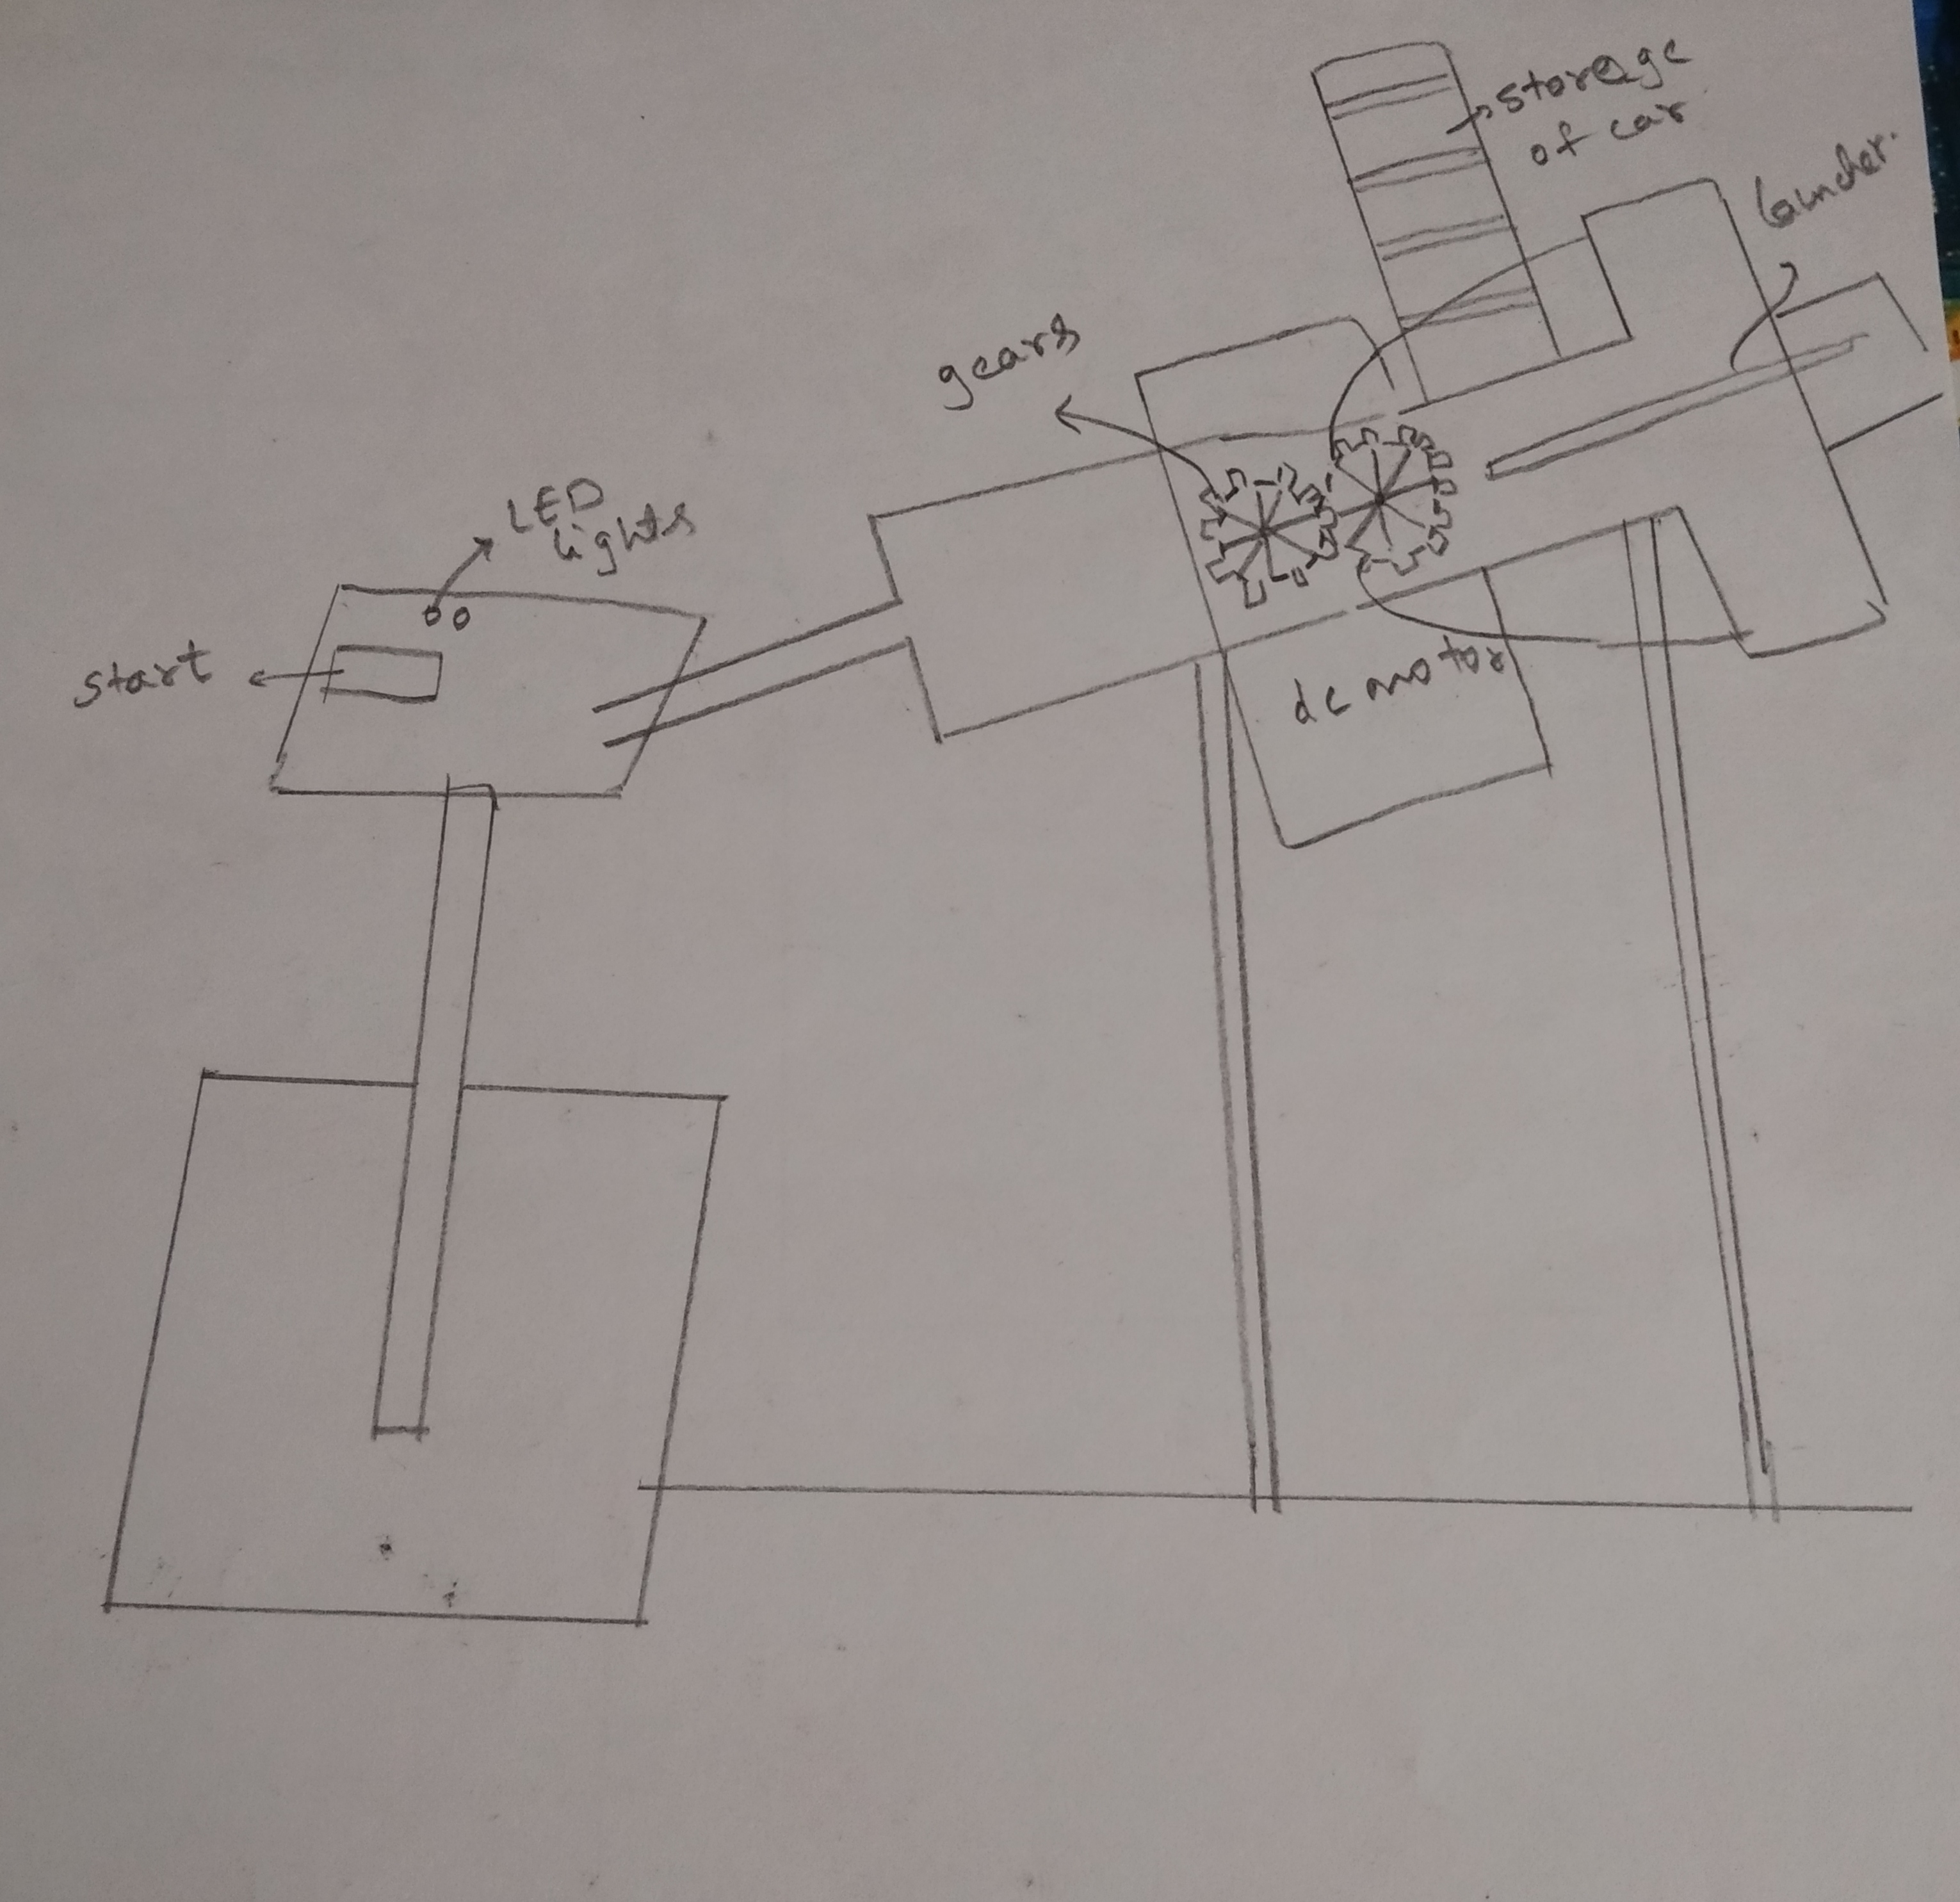 storage
of car
launcher.
gears
LED
lights
start
dc motor